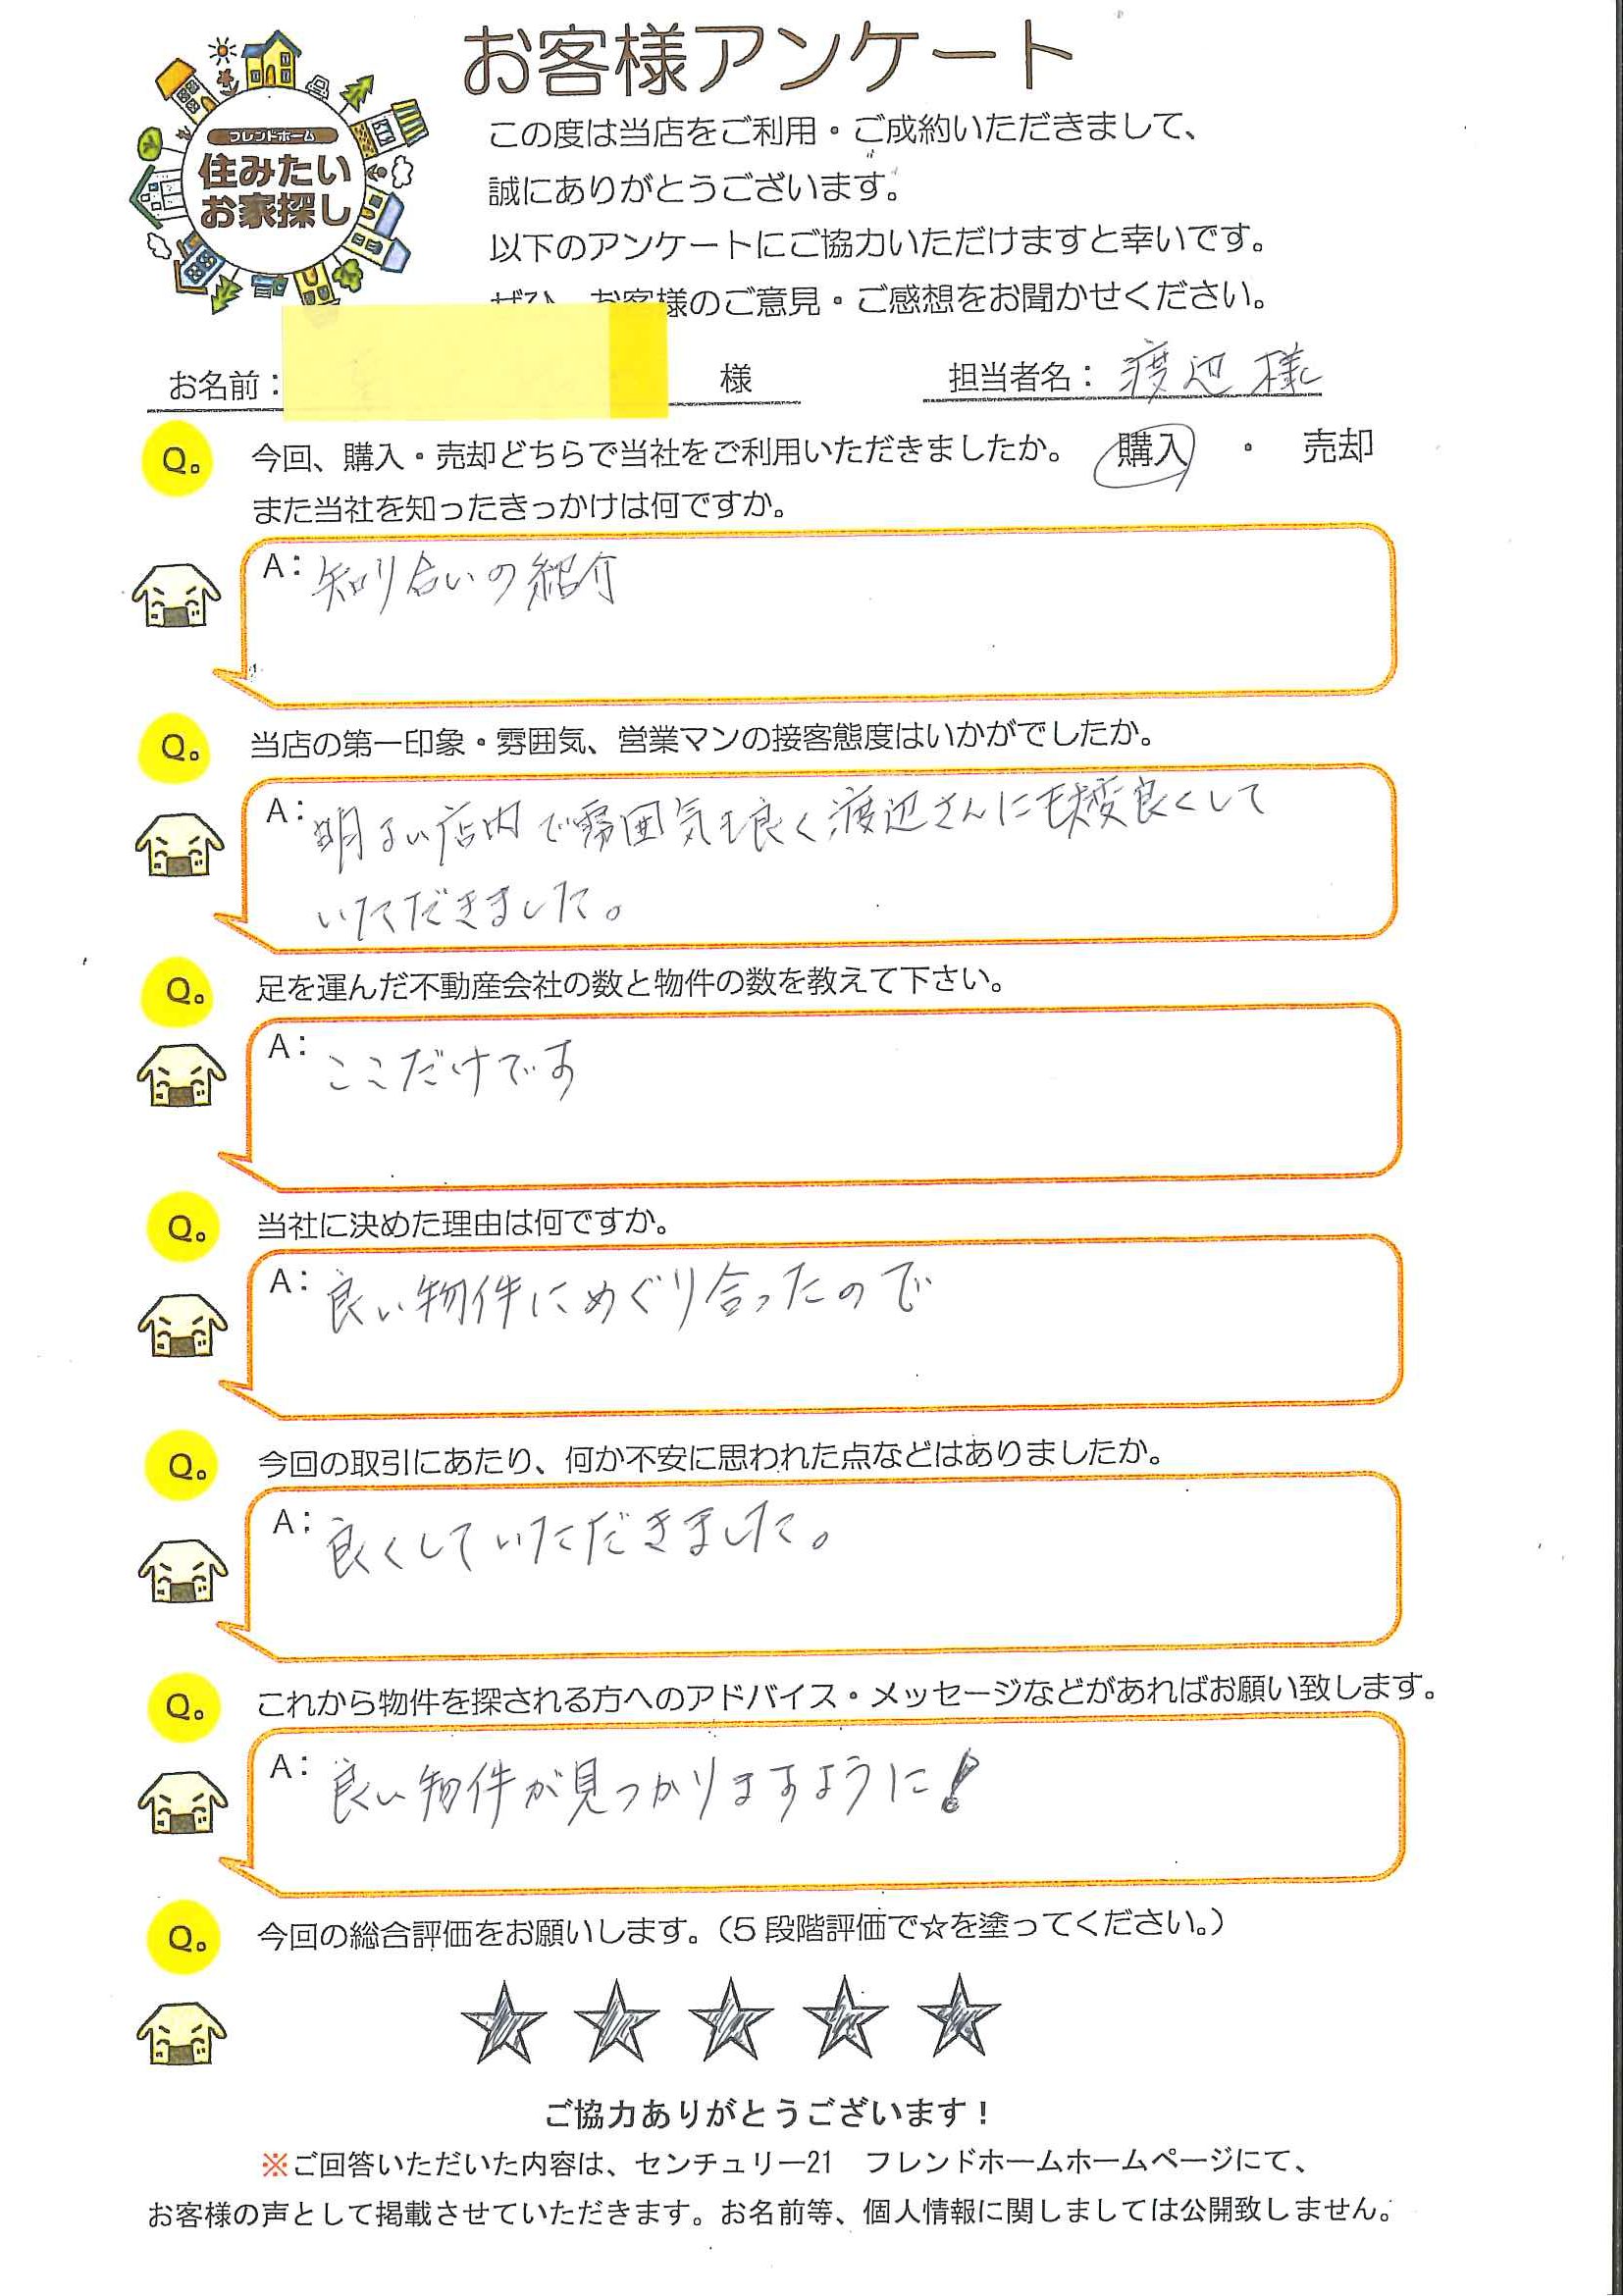 お客様アンケート
フレンドホーム
住みたい
お家探し
この度は当店をご利用・ご成約いただきまして、
誠にありがとうございます。
以下のアンケートにご協力いただけますと幸いです。
ぜひ、お客様のご意見・ご感想をお聞かせください。
お名前： 様 担当者名：渡辺様
Q。 今回、購入・売却どちらで当社をご利用いただきましたか。 購入 ・ 売却
また当社を知ったきっかけは何ですか。
A：知り合いの紹介
Q。 当店の第一印象・雰囲気、営業マンの接客態度はいかがでしたか。
A：明るい店内で雰囲気も良く渡辺さんにも大変良くして
いただきました。
Q。 足を運んだ不動産会社の数と物件の数を教えて下さい。
A：ここだけです
Q。 当社に決めた理由は何ですか。
A：良い物件にめぐり合ったので
Q。 今回の取引にあたり、何か不安に思われた点などはありましたか。
A：良くしていただきました。
Q。 これから物件を探される方へのアドバイス・メッセージなどがあればお願い致します。
A：良い物件が見つかりますように！
Q。 今回の総合評価をお願いします。（5段階評価で☆を塗ってください。）
★ ★ ★ ★ ★
ご協力ありがとうございます！
※ご回答いただいた内容は、センチュリー21　フレンドホームホームページにて、
お客様の声として掲載させていただきます。お名前等、個人情報に関しましては公開致しません。